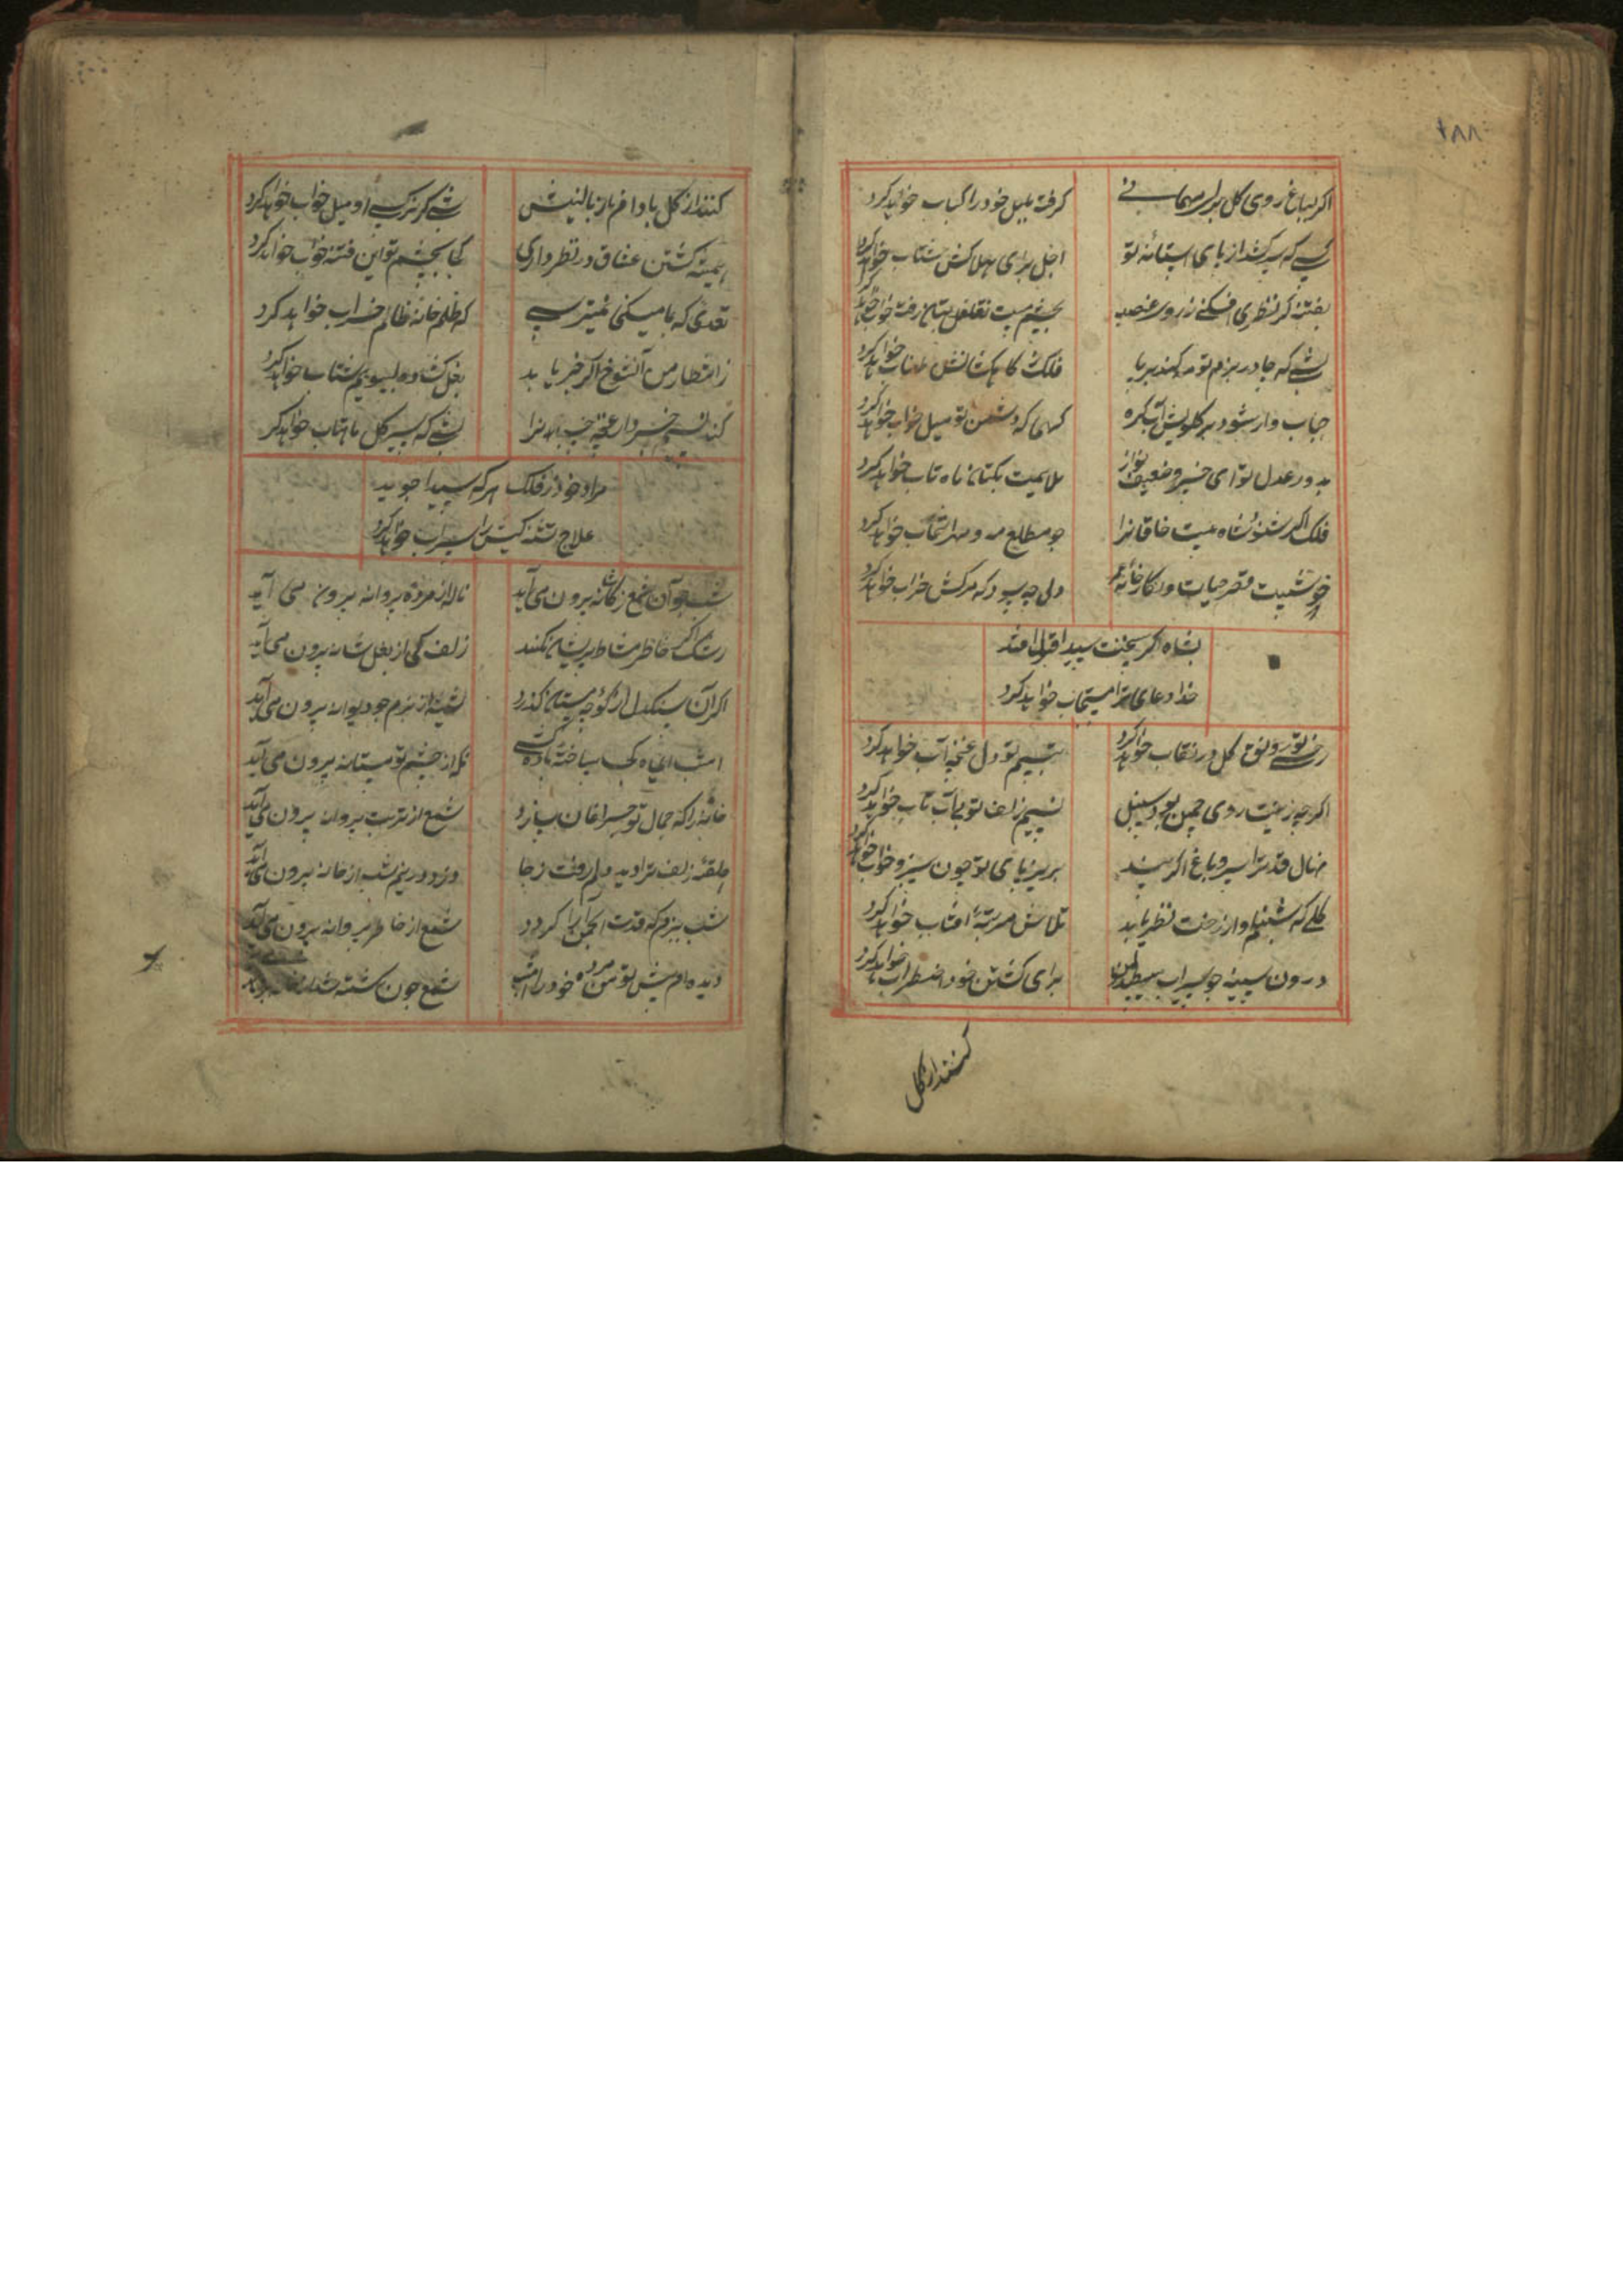 ۲۸۸
اگر بباغ روی گل برابر مهمانی گرفته بلبل خود را کباب خواهد کرد
کسی که سر کشد از پای آستانهٔ تو اجل برای هلاکش شتاب خواهد کرد
بفتنه گر نظری افکنی ز روی غضب بچشم تغافل رفته خواب خواهد کرد
شبی که جا در بزم تو کند برپا فلک کاهکشانش طناب خواهد کرد
حباب وار شود در گلویش آب گره کسی که دشمن تو میل خواب خواهد کرد
بدور عدل تو ای خسرو ضعیف نواز ملایمت بکتان ماه تاب خواهد کرد
فلک اگر شنود شاه بیت خاقانرا چو مطلع مه و مهر انتخاب خواهد کرد
خوشست قصر حیات و کارخانهٔ عمر ولی چه سود که مرگش خراب خواهد کرد
بشاه اگر سخنت سیدا قبول افتد
خدا دعای ترا مستجاب خواهد کرد
رخ تو رونق گل در نقاب خواهد کرد تبسم تو دل غنچه آب خواهد کرد
اگرچه زینت روی چمن بود سنبل نسیم زلف تو بی آب و تاب خواهد کرد
نهال قد ترا سرو باغ اگر بیند بزیر پای تو چون سبزه خواب خواهد کرد
گلی که شبنم وار از رخت نظر یابد تلاش مرتبهٔ آفتاب خواهد کرد
درون سینه چو سیماب برای کشتن خود اضطراب خواهد کرد
کنند از گل
کنند از گل بادام فرش بالینش شبی که نرگس او میل خواب خواهد کرد
همیشه کشتن عشاق در نظر داری کجا بچشم تو این فتنه خواب خواهد کرد
تعدی که بما میکنی نمیترسی که ظلم خانهٔ ظالم خراب خواهد کرد
ز انتظار من آنشوخ اگر خبر یابد بغل گشاده بسویم شتاب خواهد کرد
کند نسیم خبردار غنچه شبی که سیر گل ماهتاب خواهد کرد
مراد خود ز فلک هر که سیدا جوید
علاج تشنه کیش را سراب خواهد کرد
شب چو آن شمع ز کاشانه برون می آید ناله از مرده پروانه برون می آید
رشک اگر خاطر مشاطه پریشان نکند زلف کی از بغل شانه برون می آید
اگر آن سنگدل از کوچه مینا گذرد شیشه از بزم چو دیوانه برون می آید
امشب ای ماه کجا ساخته باده کشی که از چشم تو مستانه برون می آید
خانهٔ را که جمال تو چراغان سازد شمع از تربت پروانه برون می آید
حلقهٔ زلف ترا دید دلم رفت ز جا دزد در نیم شب از خانه برون می آید
شب ببزمی که قدت انجمن آرا گردد شمع از خاطر پروانه برون می آید
دیده ام پیش تو من مرده خود را امشب شمع چون کشته شد